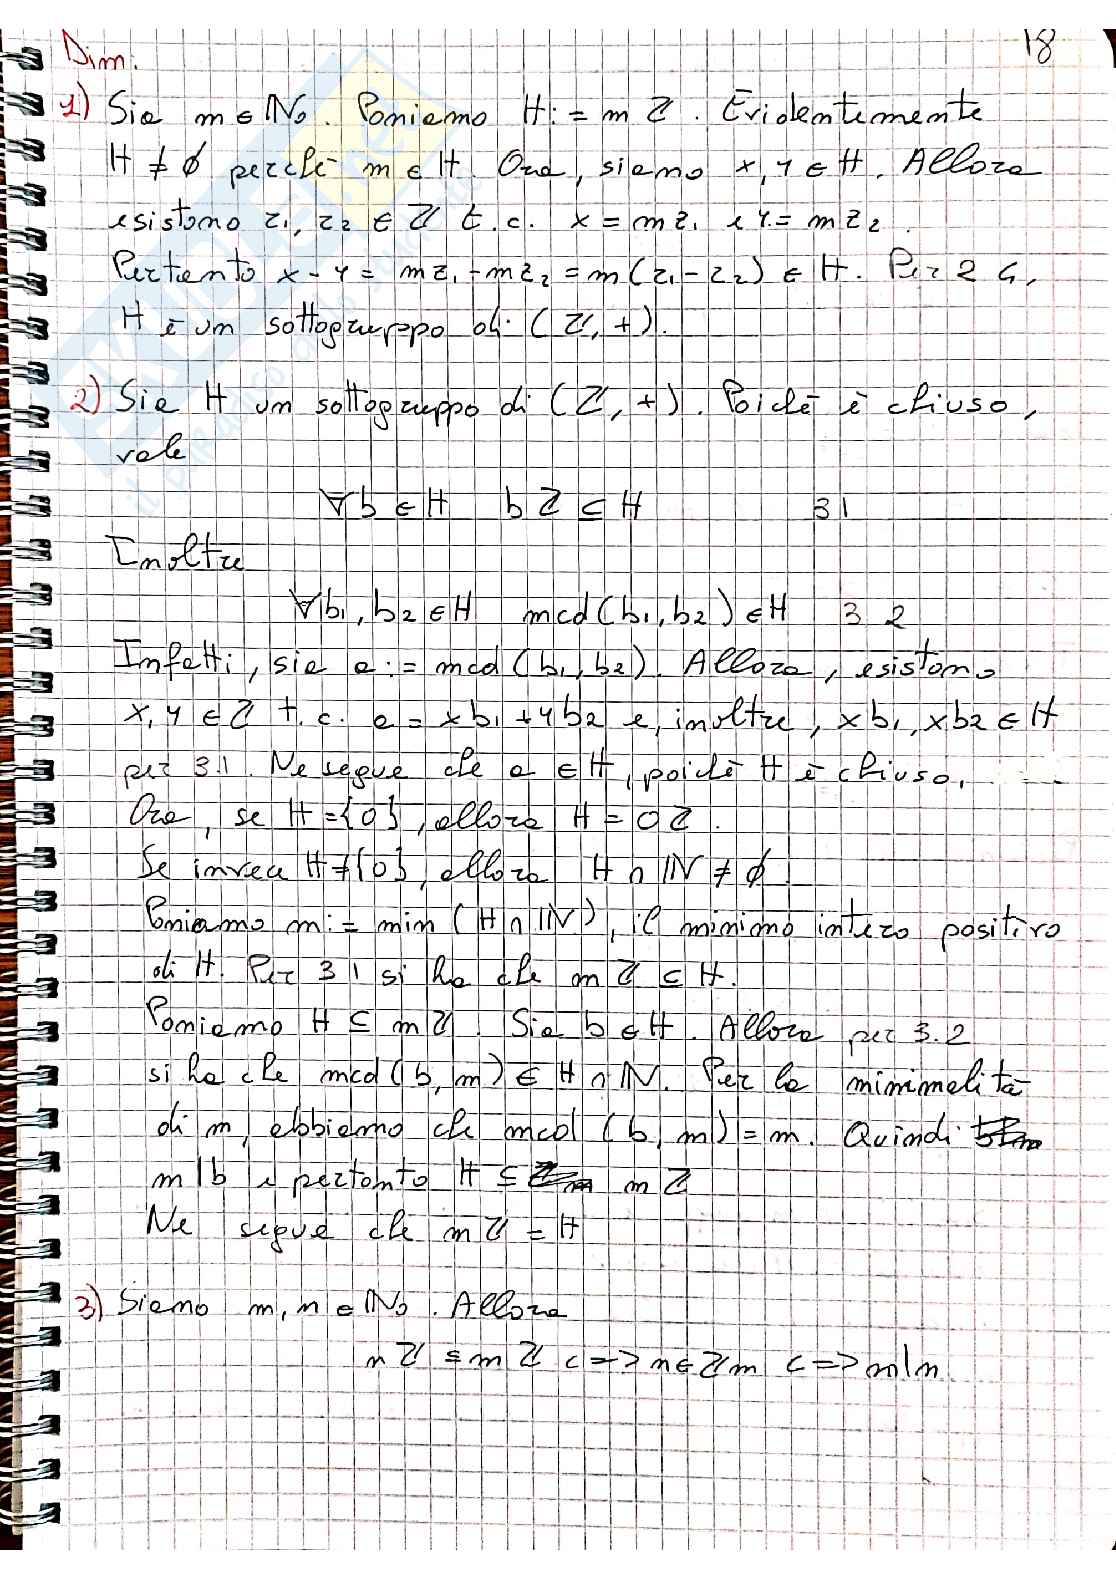 18
Dim.
1) Sia m ∈ ℕ₀. Poniamo H := mℤ. Evidentemente
H ≠ ∅ perché m ∈ H. Ora, siano x, y ∈ H. Allora
esistono z₁, z₂ ∈ ℤ t.c. x = mz₁ e y = mz₂.
Pertanto x - y = mz₁ - mz₂ = m(z₁ - z₂) ∈ H. Per 2.4,
H è un sottogruppo di (ℤ, +).
2) Sia H un sottogruppo di (ℤ, +). Poiché è chiuso,
vale
∀b ∈ H bℤ ⊆ H 3.1
Inoltre
∀b₁, b₂ ∈ H mcd(b₁, b₂) ∈ H 3.2
Infatti, sia a := mcd(b₁, b₂). Allora, esistono
x, y ∈ ℤ t.c. a = xb₁ + yb₂ e, inoltre, xb₁, xb₂ ∈ H
per 3.1. Ne segue che a ∈ H, poiché H è chiuso.
Ora, se H = {0}, allora H = 0ℤ.
Se invece H ≠ {0}, allora H ∩ ℕ ≠ ∅.
Poniamo m := min (H ∩ ℕ), il minimo intero positivo
di H. Per 3.1 si ha che mℤ ⊆ H.
Poniamo H ⊆ mℤ. Sia b ∈ H. Allora per 3.2
si ha che mcd(b, m) ∈ H ∩ ℕ. Per la minimalità
di m, abbiamo che mcd (b, m) = m. Quindi
m|b e pertanto H ⊆ mℤ
Ne segue che mℤ = H
3) Siano m, n ∈ ℕ₀. Allora
nℤ ⊆ mℤ <=> n ∈ ℤm <=> m|n.